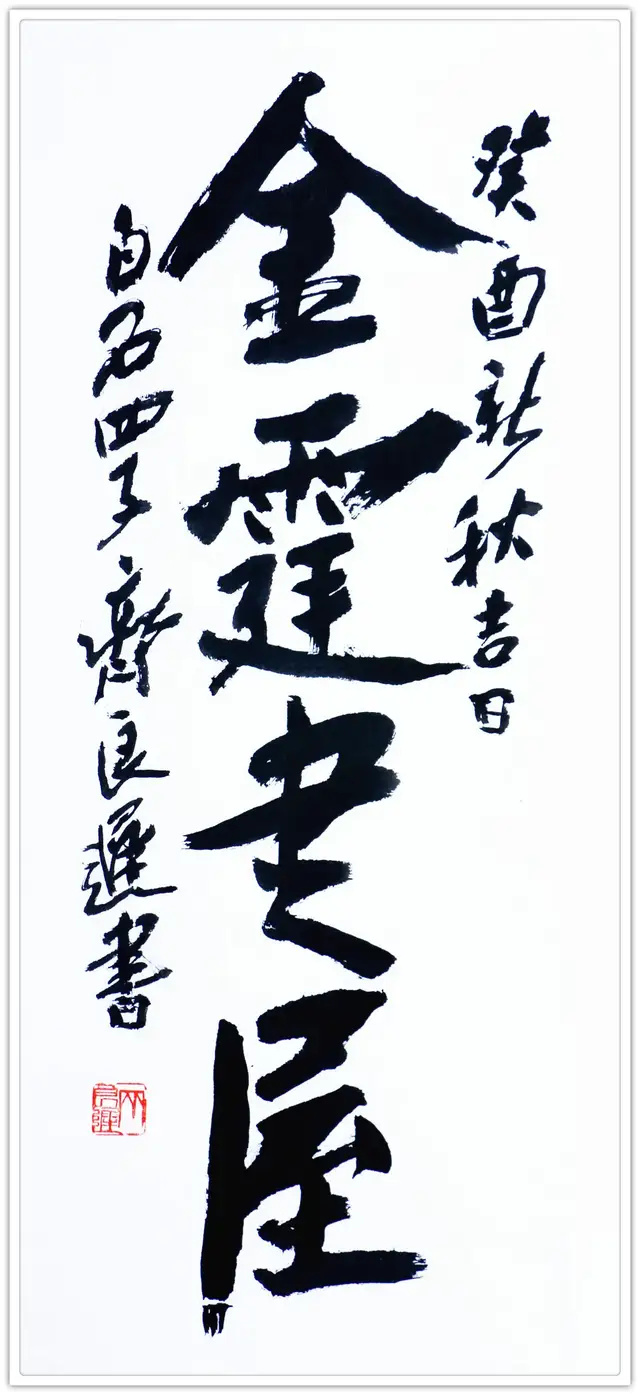 癸酉新秋吉日
金霆书屋
白石四子齊良遲書